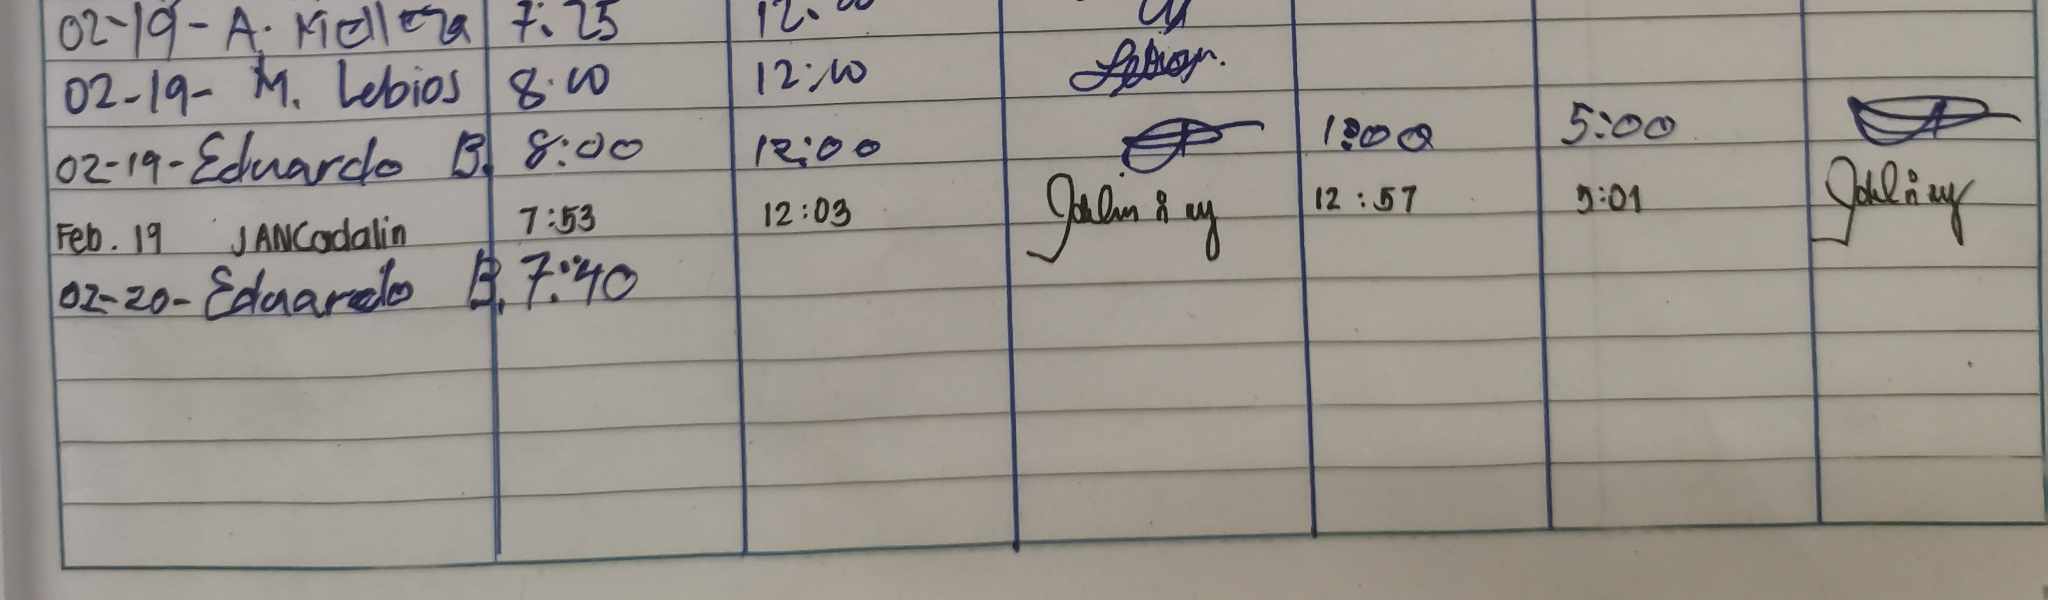 02-19- A. 7:25 12:00
02-19- M. Lebios 8:00 12:10
02-19- Eduardo B. 8:00 12:00 1:00 5:00
Feb. 19 JANCodalin 7:53 12:03 12:57 5:01
02-20- Eduardo B. 7:40